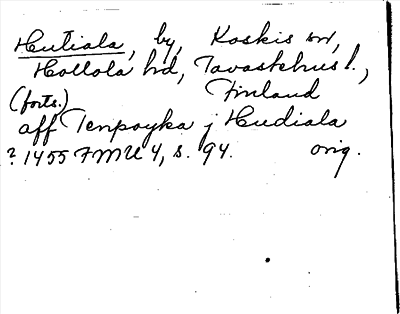 Hutiala, by, Koskis sn,
Hollola hd, Tavastehus l.,
(forts.) Finland
aff Tenpoyka j Hudiala
? 1455 FMU 4, s. 94. orig.